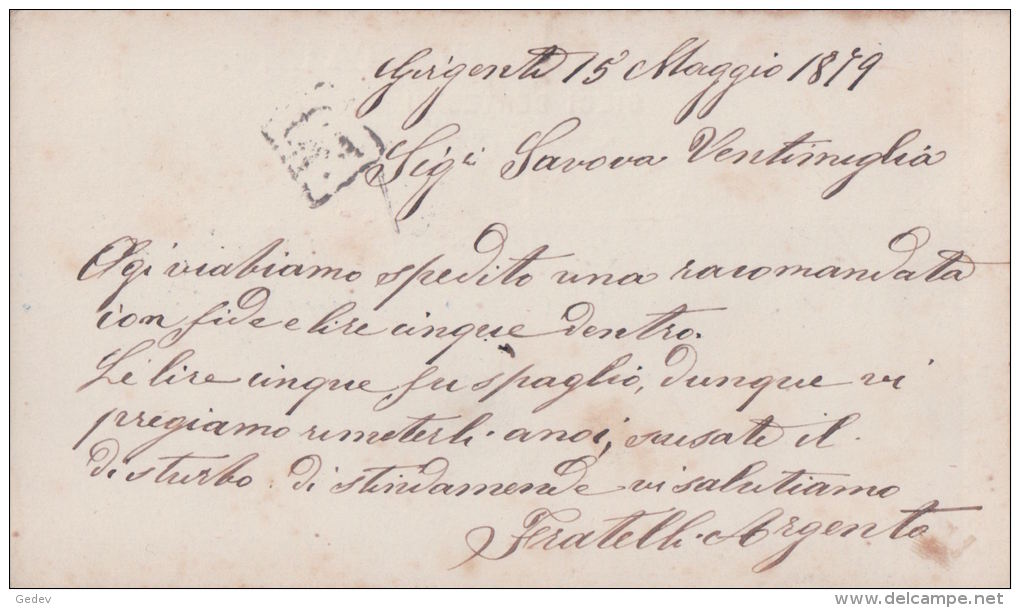 Girgenti 15 Maggio 1879
Sigri Savova Ventimiglia
Ogi viabiamo spedito una racomandata
con fide e lire cinque dentro.
Le lire cinque fu spaglio, dunque vi
pregiamo rimeterli anoi, scusate il
disturbo. distindamende vi salutiamo
Fratelli Argento
Gedev
www.delcampe.net